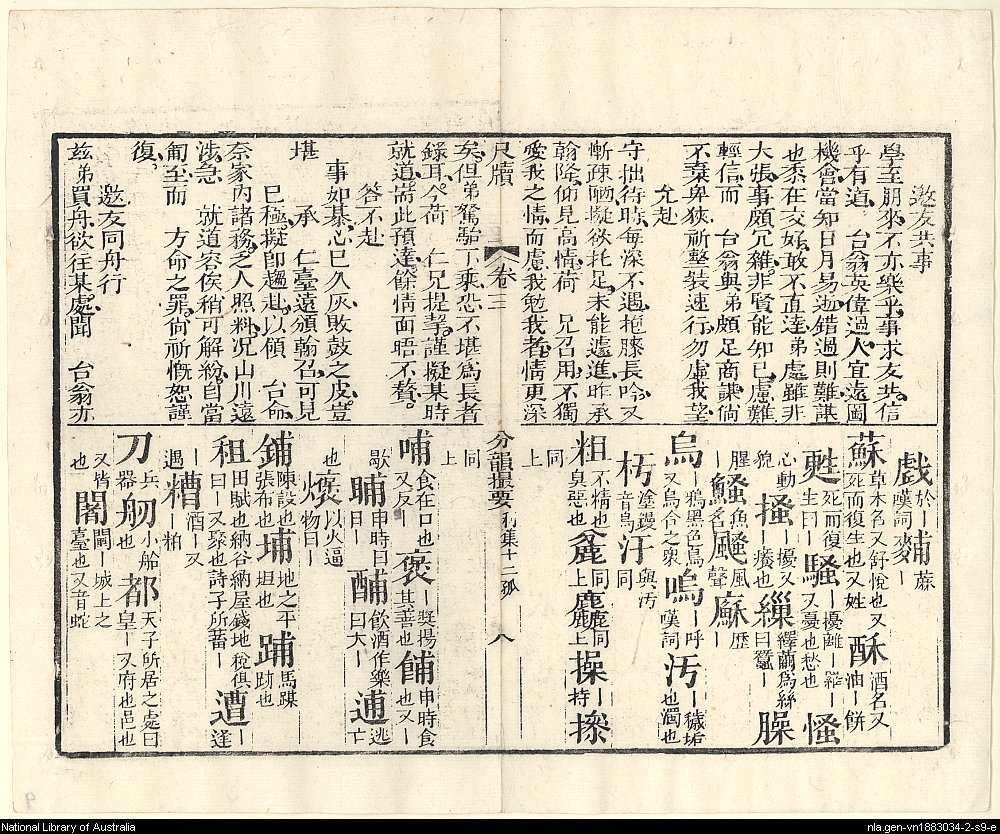 邀友共事
學至朋來不亦樂乎事求友共信
乎有道　台翁英偉過人宜遠圖
機會當知日月易逝錯過則難謀
也忝在交好敢不直達弟處雖非
大張事頗冗雜非賢能知已慮難
輕信而　台翁與弟頗足商謀倘
不棄卑狹祈整裝速行勿慮我望
允赴
守拙待時每深不遇抱膝長吟又
慚疎陋擬欲托足未能遽進昨承
翰降俯見高情荷　兄召用不獨
愛我之情而慮我勉我者情更深
尺牘　卷三
矣但弟駑駘下乘恐不堪為長者
錄耳今荷　仁兄提挈謹擬某時
就道耑此預達餘情面晤不贅
答不赴
事如棊心已久灰敗鼓之皮豈
堪　承　仁臺遠頒翰召可見
已極擬即趨赴以傾　台命
奈家內諸務乏人照料况山川遠
涉急　就道容俟稍可解紛自當
匍至而　方命之罪尚祈慨恕謹
復
邀友同舟行
茲弟買舟欲往某處聞　台翁亦
戲於｜嘆詞 麱｜
蘇草木名又舒悅也又死而復生也又姓 酥酒名又油｜餅
甦死而復生曰｜ 騷擾｜離｜又憂也愁也 慅
心動貌 搔｜擾又｜癢也 繅繹繭為絲曰蠶｜ 臊
腥｜ 鰠魚名 颾風聲
烏｜鴉黑色鳥又烏合之衆 嗚｜呼嘆詞 污｜穢垢也濁也
杇塗鏝音烏 汙與污同
粗不精也大也臭惡也 麄同上 麤同上 操持｜ 㩇
同上
分韻撮要　利集十二孤　八
同上
哺食在口也又反｜ 褒｜獎揚其善也 餔申時食也又｜
歇｜ 晡申時日曰｜ 酺飲酒作樂曰大｜ 逋逃亡
也 以火逼物曰｜
鋪陳設也張布也 埔地之平坦也 踊馬蹀跡也
租田賦也納谷納屋錢地稅俱曰｜又聚也詩子所蓄｜ 遭逢｜
遇｜ 糟酒｜又｜粕
刀兵器也 舠小船 都天子所居之處曰皇｜又府也邑也
又皆也 闍闉｜城上之臺也又音蛇
National Library of Australia
nla.gen-vn1883034-2-s9-e